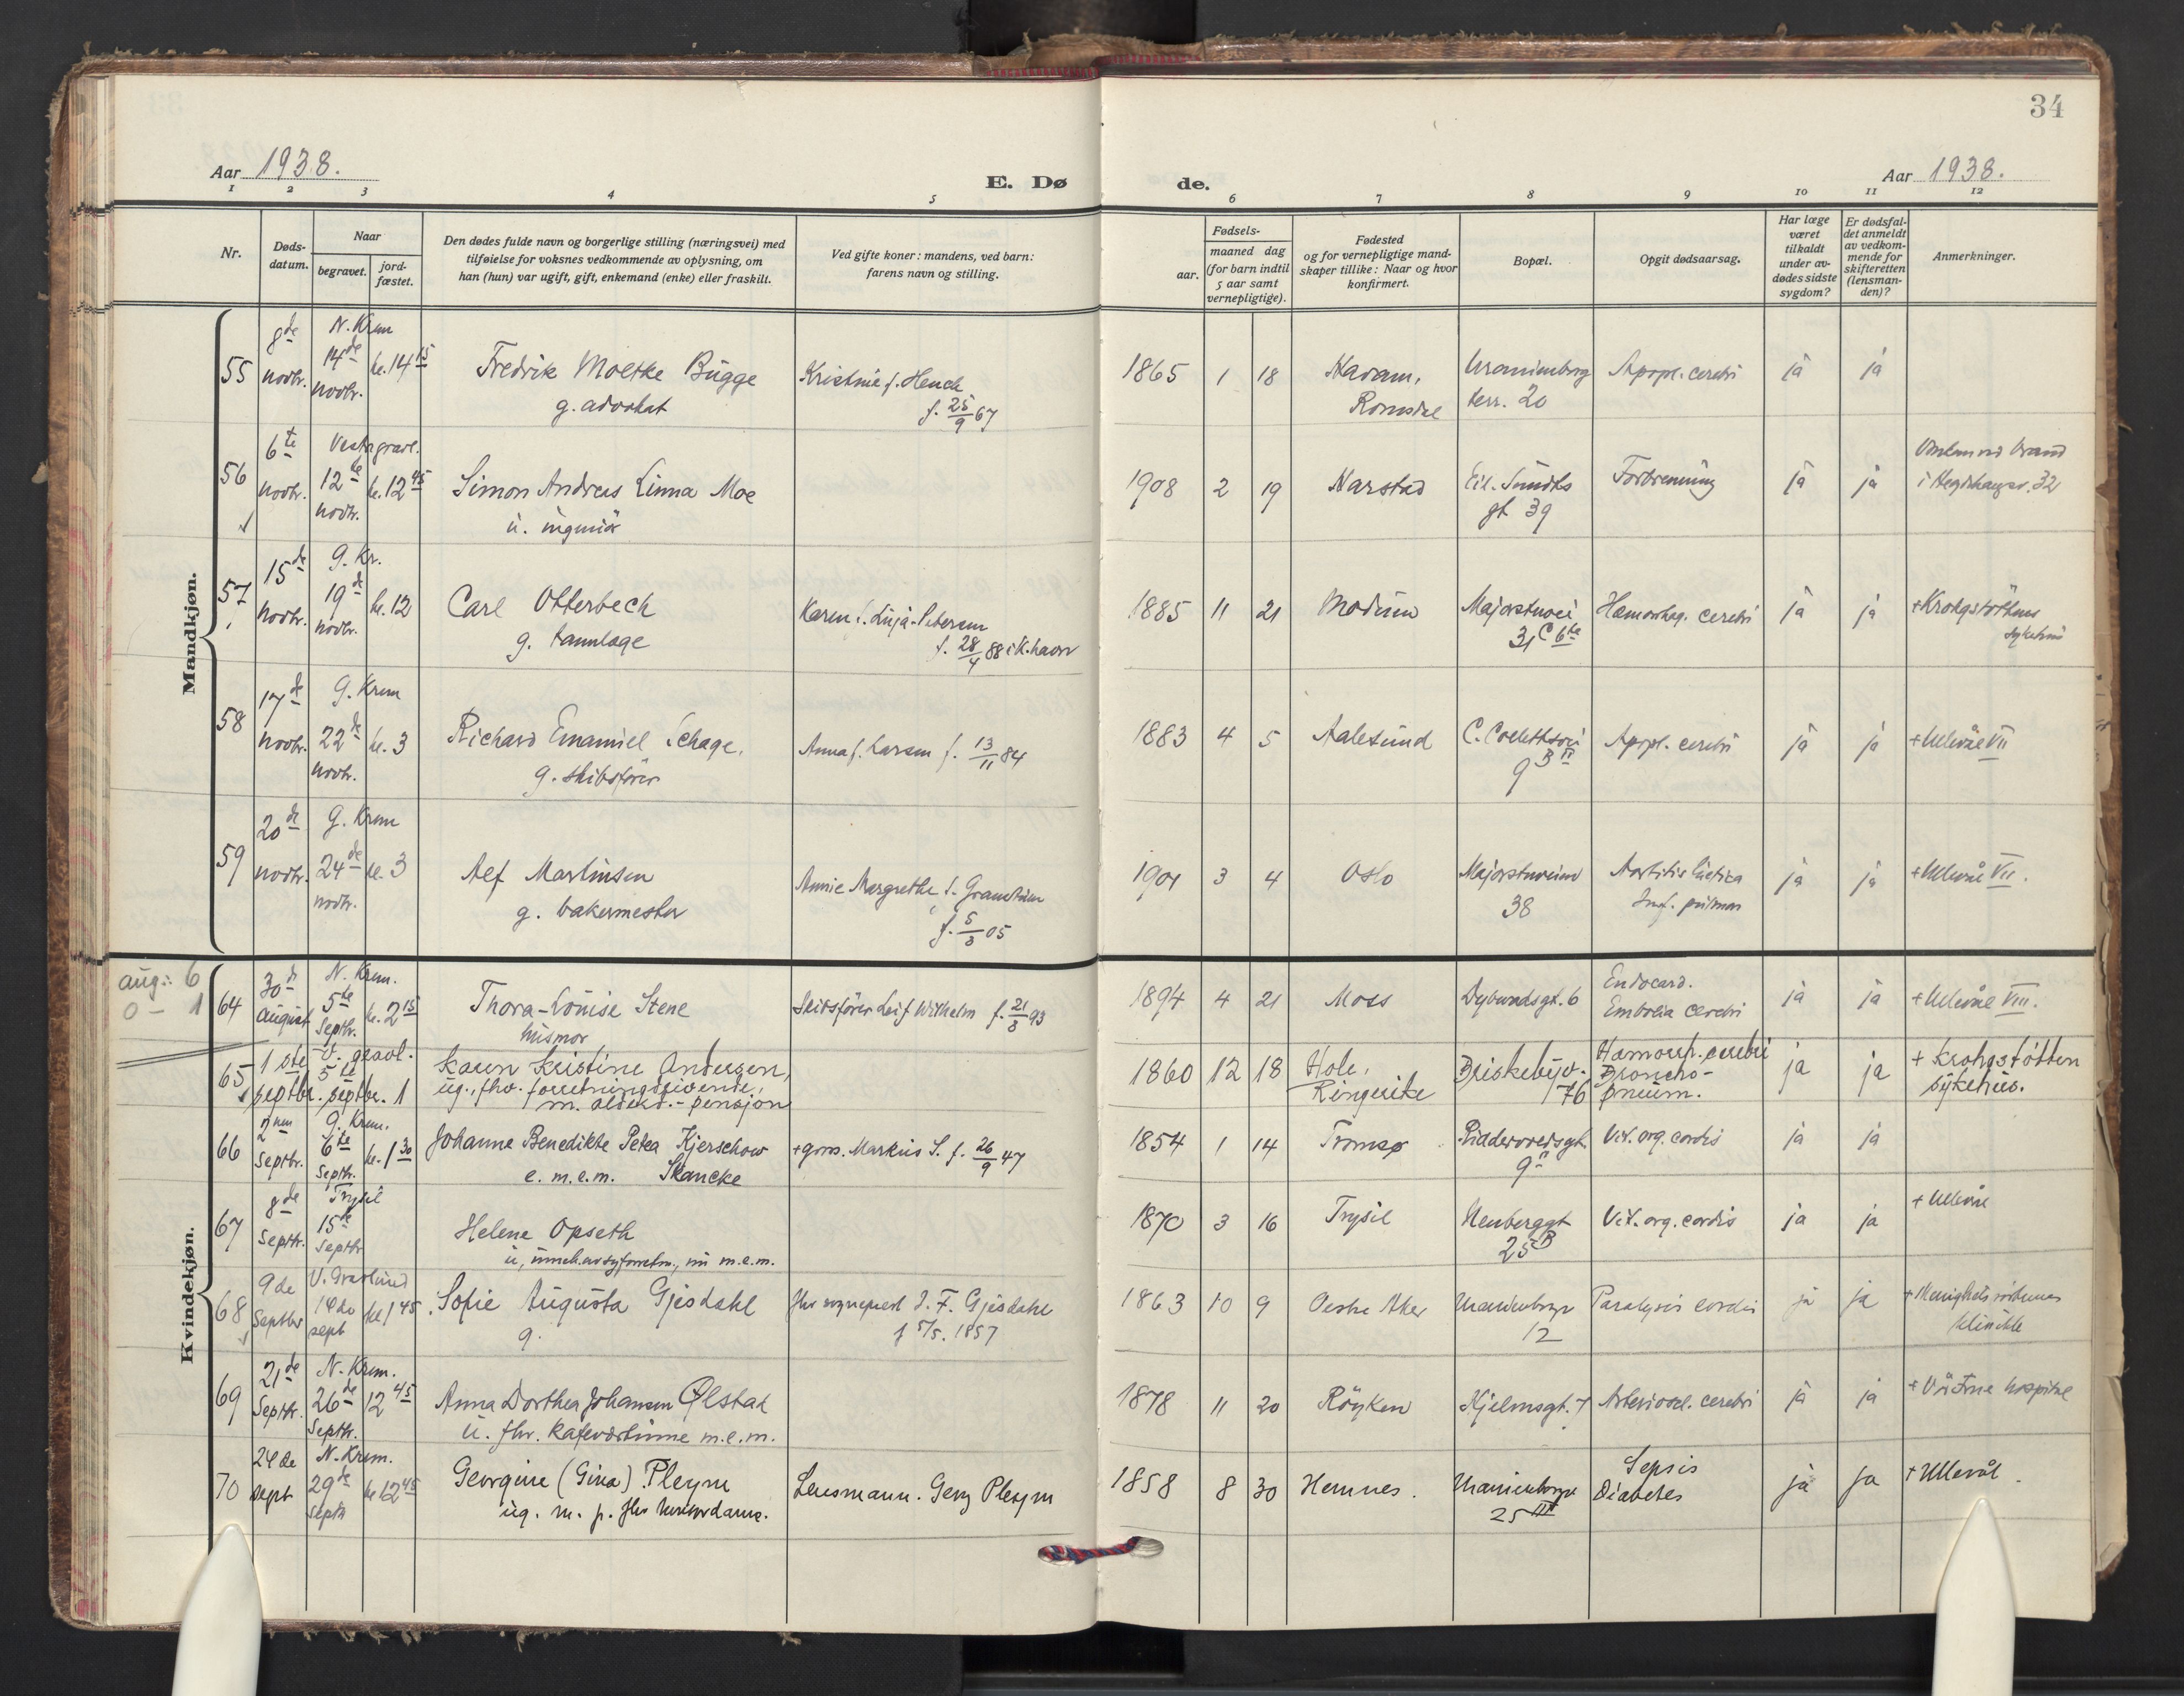 34
Aar 1938.
E. Dø
de.
Aar 1938.
1 2 3 4 5 6 7 8 9 10 11 12
Nr.
Døds-
datum.
Naar
begravet.
jord-
fæstet.
Den dødes fulde navn og borgerlige stilling (næringsvei) med
tilføielse for voksnes vedkommende av oplysning, om
han (hun) var ugift, gift, enkemand (enke) eller fraskilt.
Ved gifte koner: mandens, ved barn:
farens navn og stilling.
aar.
Fødsels-
maaned dag
(for barn indtil
5 aar samt
vernepligtige).
Fødested
og for vernepligtige mand-
skaper tillike: Naar og hvor
konfirmert.
Bopæl.
Opgit dødsaarsag.
Har læge
været
tilkaldt
under av-
dødes sidste
sygdom?
Er dødsfal-
det anmeldt
av vedkom-
mende for
skifteretten
(lensman-
den)?
Anmerkninger.
Mandkjøn.
55 8de novbr. N. Krem 14de novbr. kl. 14 15
Fredrik Moltke Bugge
g. advokat
Kristine f. Henck
f. 25/9 67
1865 1 18 Haram, Romsdal
Uranienborg terr. 20
Apopl. cerebri ja ja
56 6te novbr. Vestre gravl. 12te novbr. kl. 12 45
Simon Andreas Linna Moe
u. ingeniør
1908 2 19 Harstad
Eil. Sundts gt 39
Forbrenning ja ja
Omkom ved brand
i Hegdehaugsv. 32
57 15de novbr. G. Kr. 19de novbr. kl. 12
Carl Otterbech
g. tannlæge
Karen f.
f. 28/4 88 i K.havn
1885 11 21 Modum
Majorstuvei 31 C 6te
Hæmorrhag. cerebri ja ja
+ Krohgstøttens
sykehus
58 17de novbr. G. Krem 22de novbr. kl. 3
Richard Emanuel Schage.
g. skibsfører
Anna f. Larsen f. 13/11 84
1883 4 5 Aalesund
C. Collettsvei 9 B II
Apopl. cerebri ja ja
+ Ullevål VII
59 20de novbr. G. Krem 24de novbr. kl. 3
Alf Martinsen
g. bakermester
Annie Margrethe f.
f. 5/3 05
1901 3 4 Oslo
Majorstuveien 38
Aortitis luetica
Inf. pulmon ja ja
+ Ullevål VII.
Kvindekjøn.
aug.: 6
0 - 1
64 30de august N. Krem. 5te Septbr. kl. 2 15
Thora-Louise Stene
husmor
Skibsfører Leif Wilhelm f. 21/3 93
1894 4 21 Moss
Dybwadsgt. 6
Endocard.
Embolia cerebri ja ja
+ Ullevål VIII.
65 1ste septbr. V. gravl. 5te septbr. 1
Karen Kristine Andersen,
ug., fhv. forretningsdrivende,
m. alderd.-pensjon
1860 12 18 Hole, Ringerike
Briskebyv. 76
Hæmorrh. cerebri
Broncho-
pneum. ja ja
+ Krohgstøtten
sykehus.
66 2nen Septbr. G. Krem. 6te Septbr. kl. 1 30
Johanne Benedikte Petra Kjerschow
e. m.e.m. Skancke
+ gross. Markus S. f. 26/9 47
1854 1 14 Tromsø
Riddervoldsgt. 9 II
Vit. org. cordis ja ja
67 8de Septbr. Trysil 15de Septbr
Helene Opseth
1870 3 16 Trysil
Neuberggt 25 B
Vit. org. cordis ja ja
+ Ullevål
68 9de Septbr V. Gravlund 14de sept kl 1 45
Sofie Augusta Gjesdahl
g.
fhv sogneprest J. F. Gjesdahl
f 5/5. 1857
1863 10 9 Vestre Aker
Uranienborgv 12
Paralysis cordis ja ja
+ Menighetssøstrenes
klinikk
69 21de Septbr. N. Krem. 26de Septbr. 12 45
Anna Dorthea Johansen Ølstad
u. fhv. kafevertinne m.e.m.
1878 11 20 Röyken
Hjelmsgt. 7
Arterioscl. cerebri ja ja
+ Vår Frue hospital
70 24de sept N. Krem. 29de septbr kl 12 45
Georgine (Gina) Pleym
ug. m. p. fhv
Lensmann. Georg Pleym
1858 8 30 Hemnes.
Uranienborgv 25 III
Sepsis
Diabetes ja ja
+ Ullevål.